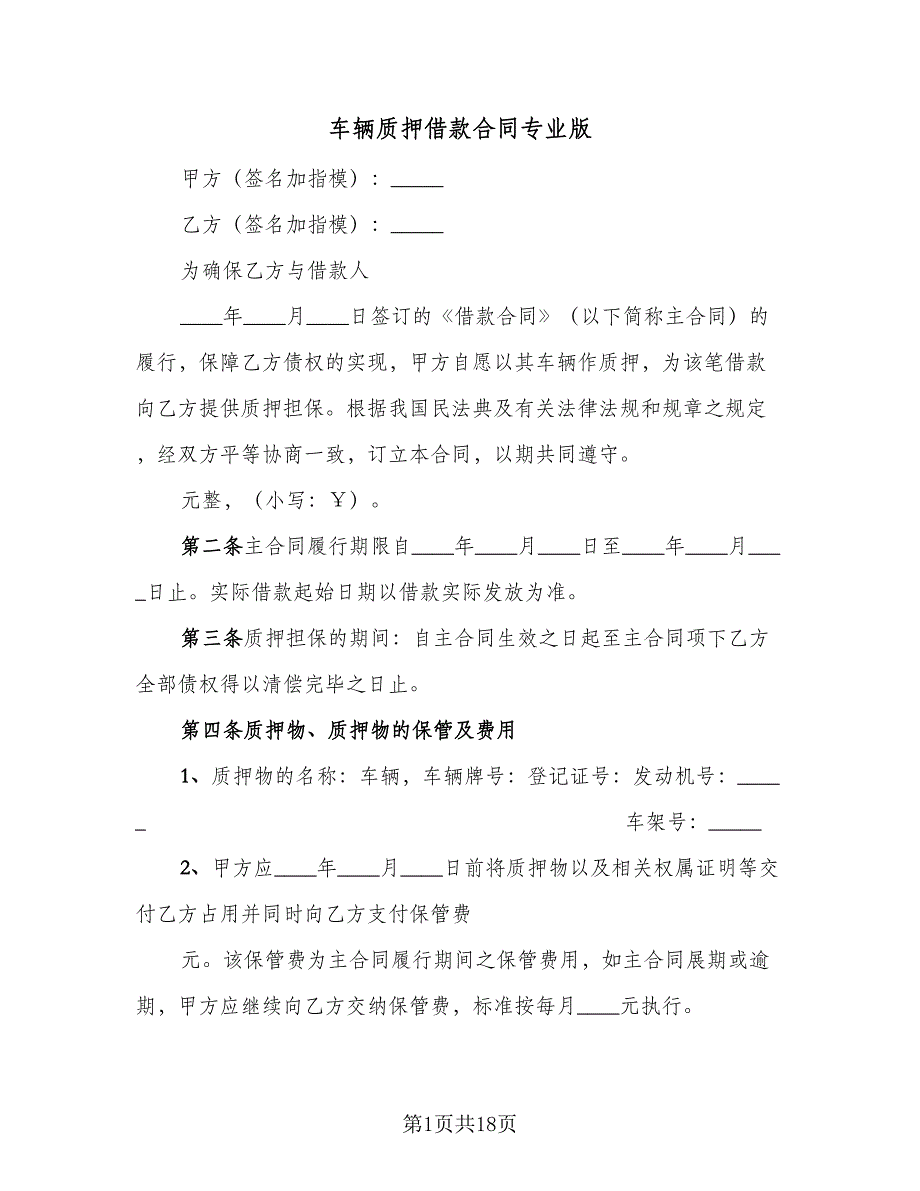 车辆质押借款合同专业版
甲方（签名加指模）：_____
乙方（签名加指模）：_____
为确保乙方与借款人
____年____月____日签订的《借款合同》（以下简称主合同）的
履行，保障乙方债权的实现，甲方自愿以其车辆作质押，为该笔借款
向乙方提供质押担保。根据我国民法典及有关法律法规和规章之规定
，经双方平等协商一致，订立本合同，以期共同遵守。
元整，（小写：￥）。
第二条主合同履行期限自____年____月____日至____年____月___
_日止。实际借款起始日期以借款实际发放为准。
第三条质押担保的期间：自主合同生效之日起至主合同项下乙方
全部债权得以清偿完毕之日止。
第四条质押物、质押物的保管及费用
1、质押物的名称：车辆，车辆牌号：登记证号：发动机号：____
_ 车架号：_____
2、甲方应____年____月____日前将质押物以及相关权属证明等交
付乙方占用并同时向乙方支付保管费
元。该保管费为主合同履行期间之保管费用，如主合同展期或逾
期，甲方应继续向乙方交纳保管费，标准按每月____元执行。
第1页共18页